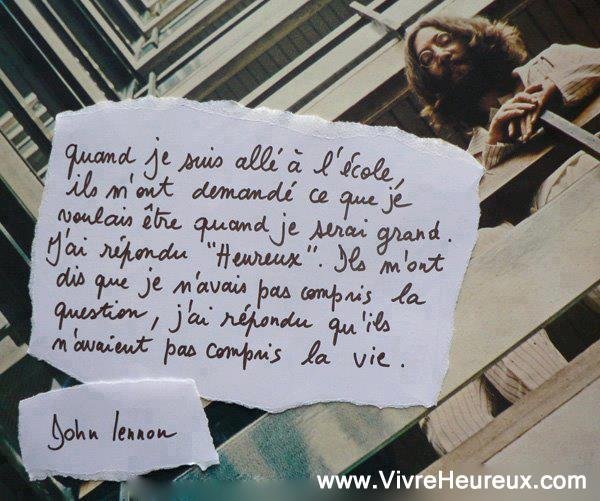 quand je suis allé à l'école,
ils m'ont demandé ce que je
voulais être quand je serai grand.
J'ai répondu "Heureux". Ils m'ont
dis que je n'avais pas compris la
question, j'ai répondu qu'ils
n'avaient pas compris la vie.
John lennon
www.VivreHeureux.com